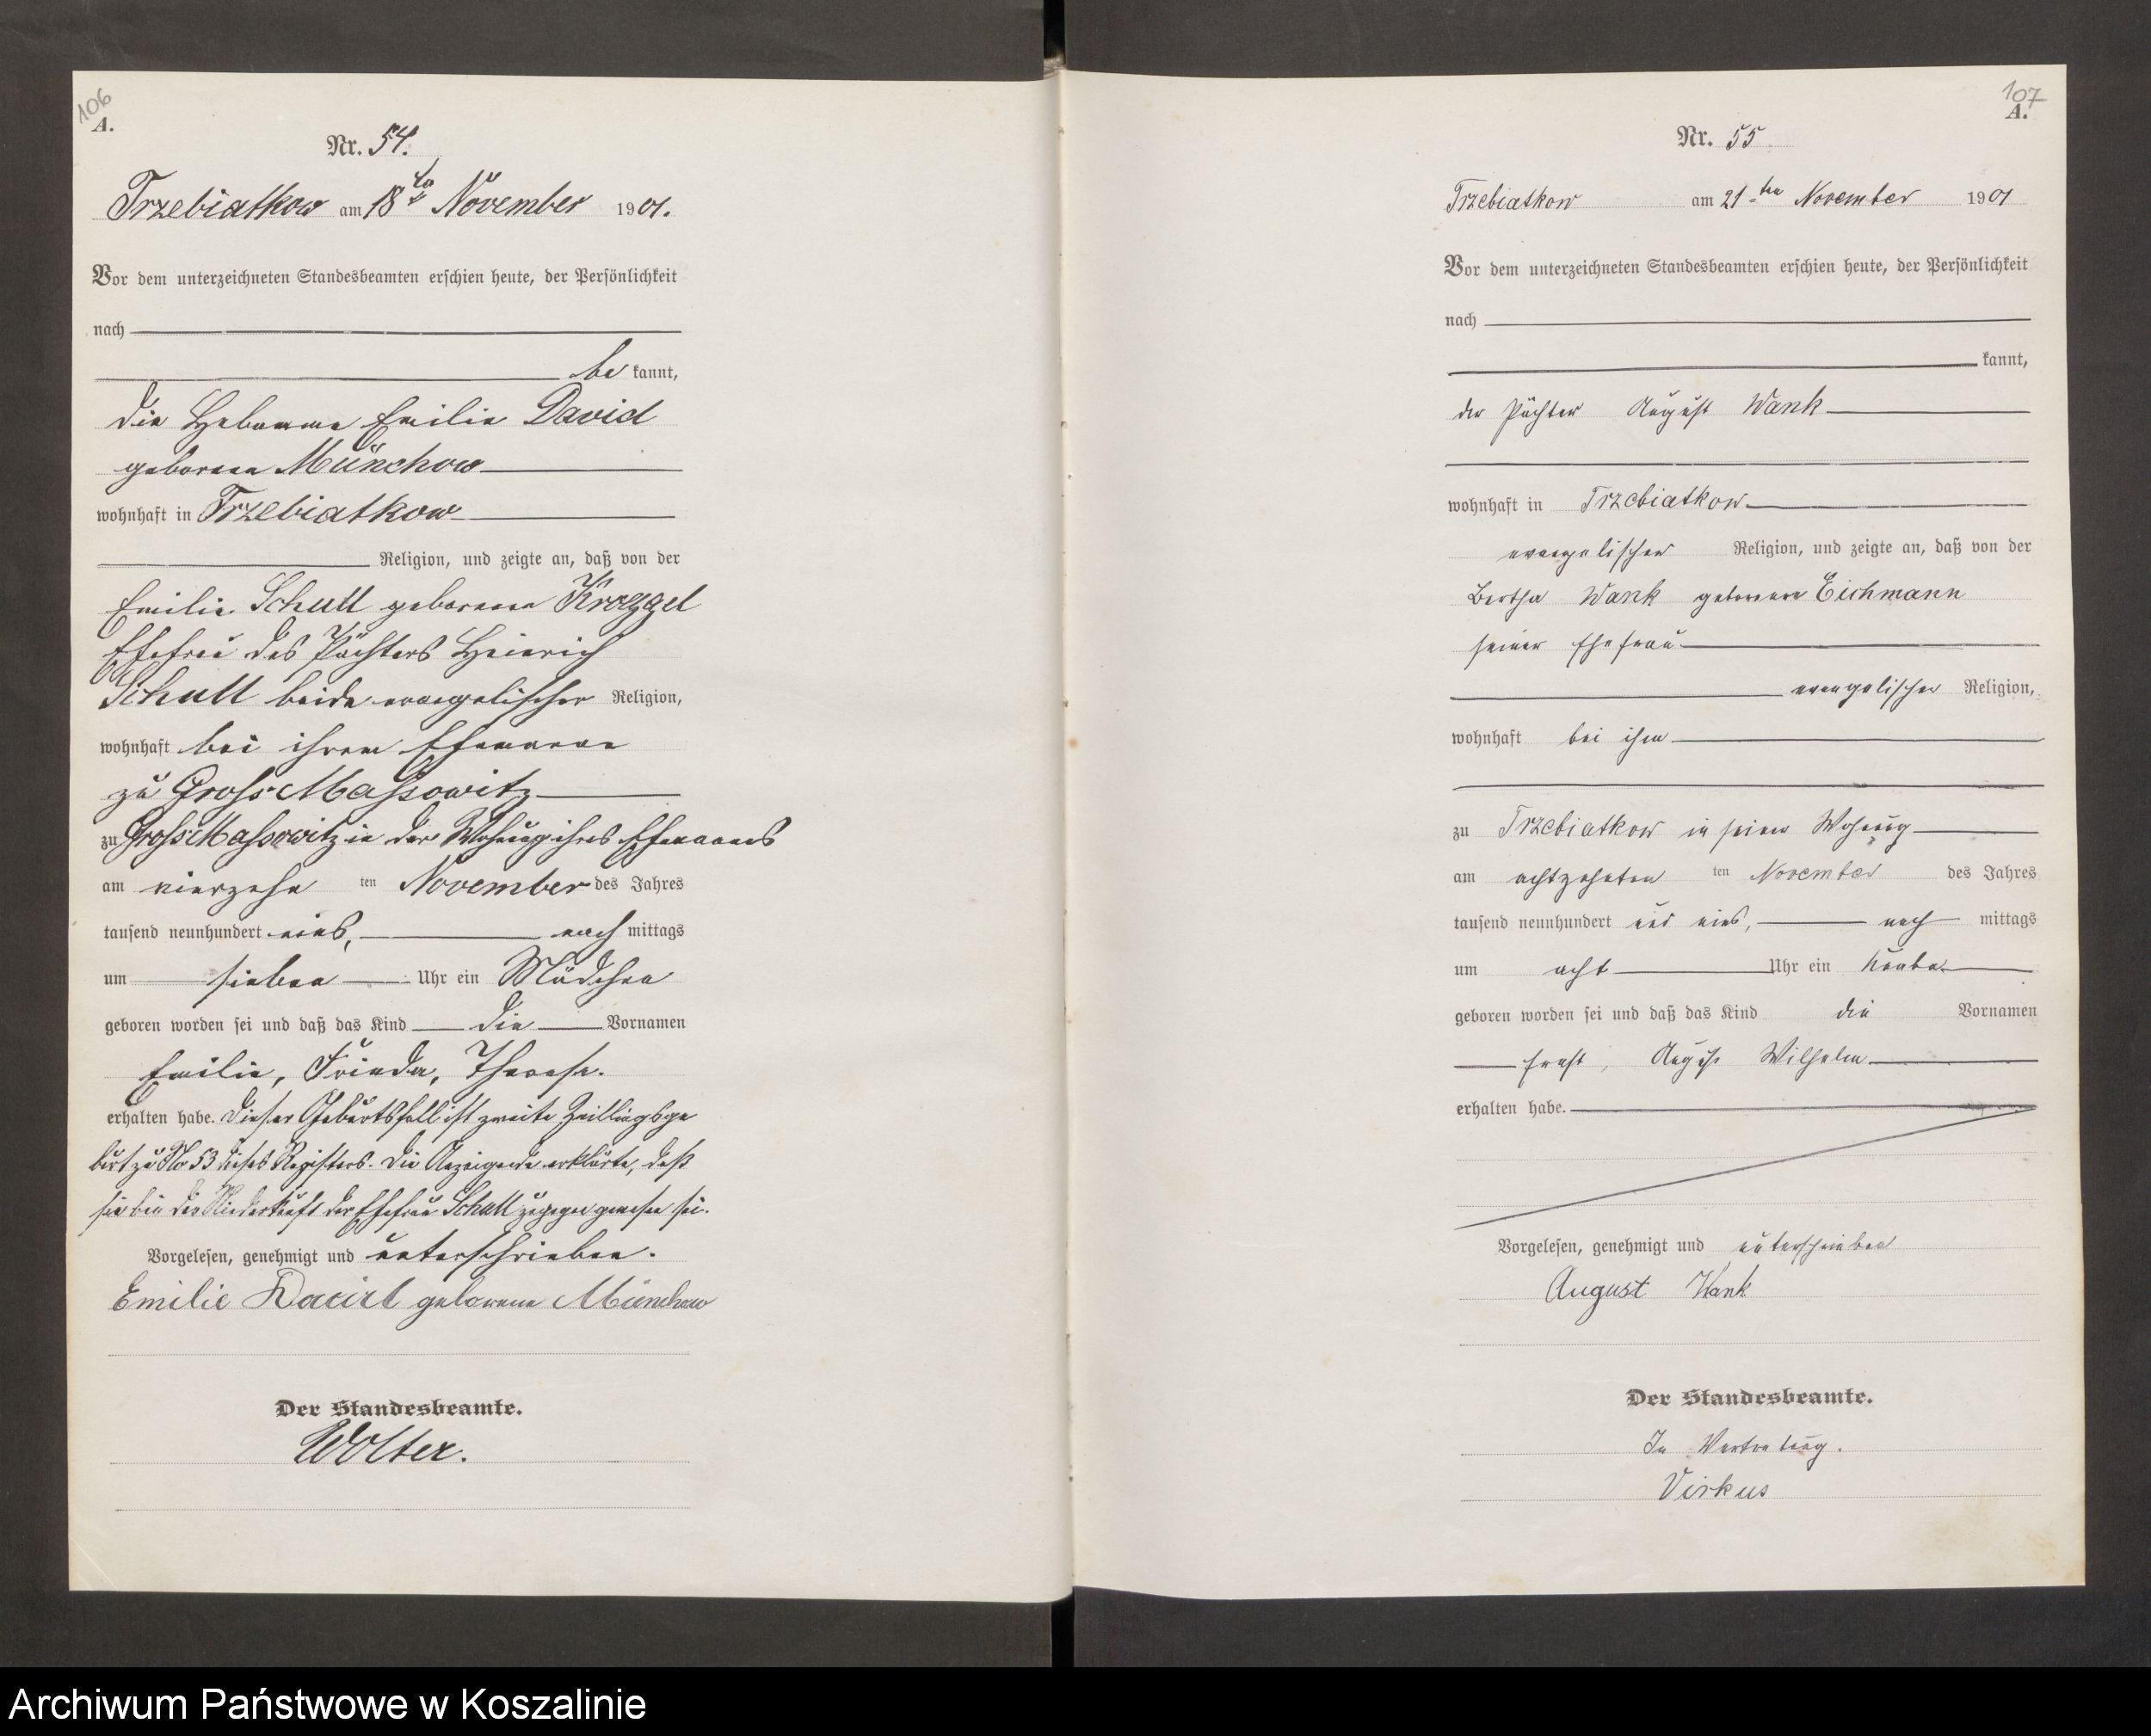 106
A.
Nr. 54.
Trzebiatkow am 18ten November 1901.
Vor dem unterzeichneten Standesbeamten erschien heute, der Persönlichkeit
nach
be kannt,
die Hebamme Emilie David
geborene Münchow
wohnhaft in Trzebiatkow
Religion, und zeigte an, daß von der
Emilie Schutt geborene Kroggel
Ehefrau des Pächters Heinrich
Schutt beide evangelischer Religion,
wohnhaft bei ihrem Ehemanne
zu Gross Massowitz
zu Gross Massowitz in der Wohnung ihres Ehemannes
am vierzehn ten November des Jahres
tausend neunhundert eins, nach mittags
um sieben Uhr ein Mädchen
geboren worden sei und daß das Kind die Vornamen
Emilie, Frieda, Therese.
erhalten habe. Dieser Geburtsfall ist zweite Zwillingsge
burt zu No 53 dieses Registers. Die Anzeigende erklärte, daß
sie bei der Niederkunft der Ehefrau Schutt zugegen gewesen sei.
Vorgelesen, genehmigt und unterschrieben.
Emilie David geborene Münchow
Der Standesbeamte.
Wolter.
107
A.
Nr. 55
Trzebiatkow am 21ten November 1901
Vor dem unterzeichneten Standesbeamten erschien heute, der Persönlichkeit
nach
kannt,
der Pächter August Wank
wohnhaft in Trzebiatkow
evangelischer Religion, und zeigte an, daß von der
Bertha Wank geborene Eichmann
seiner Ehefrau
evangelischer Religion,
wohnhaft bei ihm
zu Trzebiatkow in seiner Wohnung
am achtzehnten ten November des Jahres
tausend neunhundert und eins, nach mittags
um acht Uhr ein Knabe
geboren worden sei und daß das Kind die Vornamen
Ernst, August Wilhelm
erhalten habe.
Vorgelesen, genehmigt und unterschrieben
August Wank
Der Standesbeamte.
In Vertretung.
Virkus
Archiwum Państwowe w Koszalinie